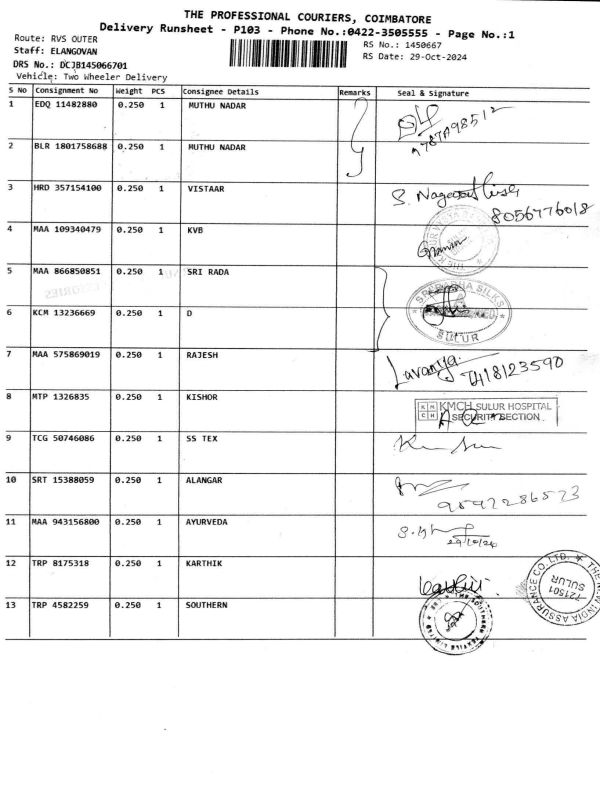 THE PROFESSIONAL COURIERS, COIMBATORE
Delivery Runsheet - P103 - Phone No.:0422-3505555 - Page No.:1
Route: RVS OUTER
RS No.: 1450667
Staff: ELANGOVAN
RS Date: 29-Oct-2024
DRS No.: DCJB145066701
Vehicle: Two Wheeler Delivery
S No Consignment No Weight PCS Consignee Details Remarks Seal & Signature
1 EDQ 11482880 0.250 1 MUTHU NADAR
2 BLR 1801758688 0.250 1 MUTHU NADAR
3 HRD 357154100 0.250 1 VISTAAR
8056776018
4 MAA 109340479 0.250 1 KVB
5 MAA 866850851 0.250 1 SRI RADA
6 KCM 13236669 0.250 1 D
SILKS
SULUR
7 MAA 575869019 0.250 1 RAJESH
Lavanya
7418123590
8 MTP 1326835 0.250 1 KISHOR
KMCH KMCH SULUR HOSPITAL
SECURITY SECTION
9 TCG 50746086 0.250 1 SS TEX
10 SRT 15388059 0.250 1 ALANGAR
9597286573
11 MAA 943156800 0.250 1 AYURVEDA
29/10/24
12 TRP 8175318 0.250 1 KARTHIK
THE NEW INDIA ASSURANCE CO. LTD.
721501
SULUR
13 TRP 4582259 0.250 1 SOUTHERN
THE SOUTHERN TEXTILE LIMITED